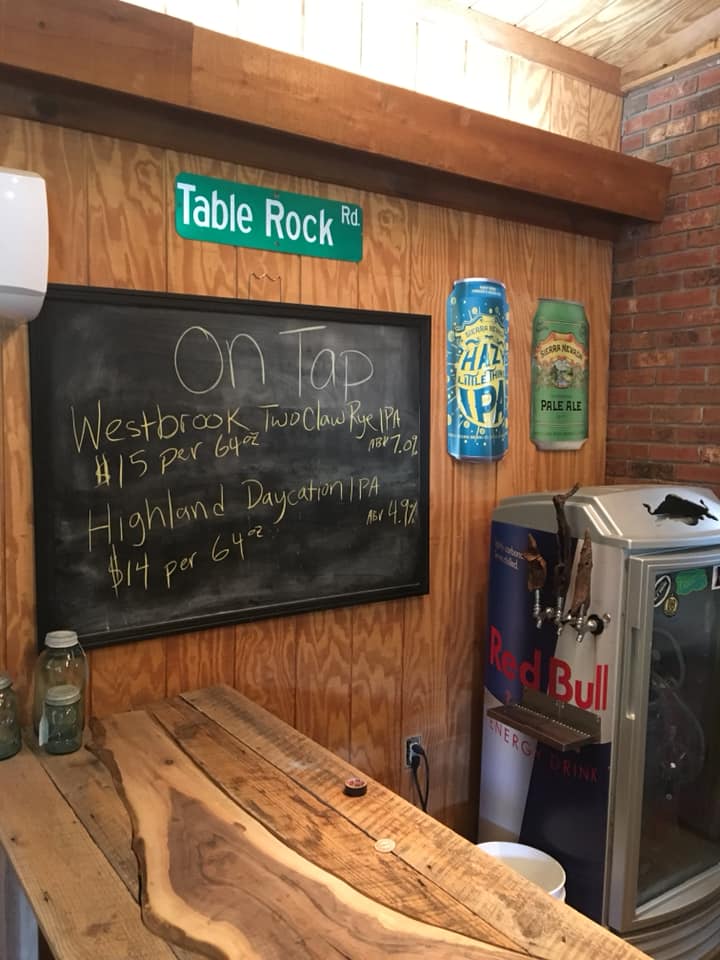 Table Rock Rd.
On Tap
Westbrook Two Claw Rye IPA
$15 per 64oz ABV 7.0%
Highland Daycation IPA
$14 per 64oz ABV 4.9%
SIERRA NEVADA
HAZY
LITTLE THING
IPA
SIERRA NEVADA
PALE ALE
Red Bull
ENERGY DRINK